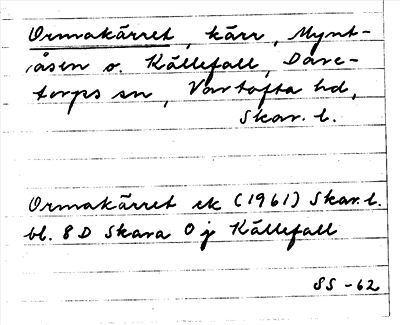 Ormakärret, kärr, Mynt-
åsen o. Källefall, Dare-
torps sn, Vartofta hd,
Skar. l.
Ormakärret ek (1961) Skar. l.
bl. 8 D Skara 0 j Källefall
SS -62